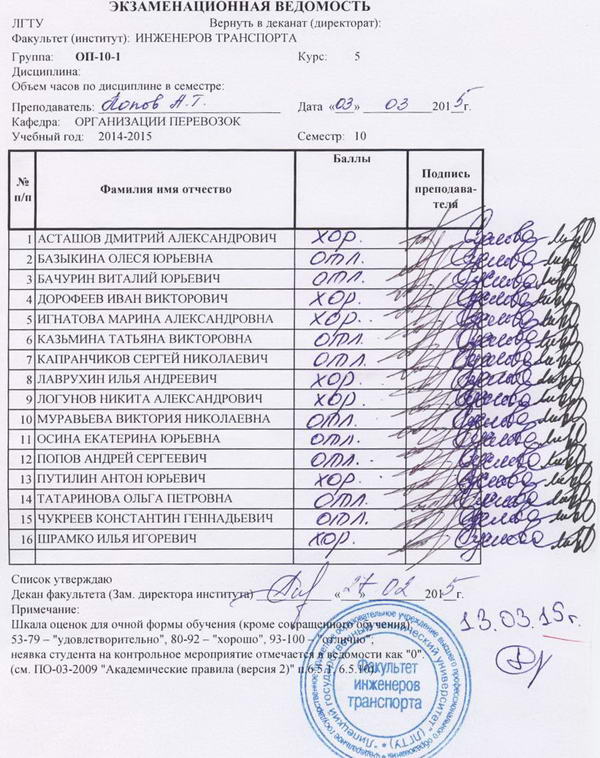 ЭКЗАМЕНАЦИОННАЯ ВЕДОМОСТЬ
ЛГТУ Вернуть в деканат (директорат):
Факультет (институт): ИНЖЕНЕРОВ ТРАНСПОРТА
Группа: ОП-10-1 Курс: 5
Дисциплина:
Объем часов по дисциплине в семестре:
Преподаватель: Попов А.Т. Дата «03» 03 2015г.
Кафедра: ОРГАНИЗАЦИИ ПЕРЕВОЗОК
Учебный год: 2014-2015 Семестр: 10
№ п/п Фамилия имя отчество Баллы Подпись преподава-теля
1 АСТАШОВ ДМИТРИЙ АЛЕКСАНДРОВИЧ хор.
2 БАЗЫКИНА ОЛЕСЯ ЮРЬЕВНА отл.
3 БАЧУРИН ВИТАЛИЙ ЮРЬЕВИЧ отл.
4 ДОРОФЕЕВ ИВАН ВИКТОРОВИЧ хор.
5 ИГНАТОВА МАРИНА АЛЕКСАНДРОВНА хор.
6 КАЗЬМИНА ТАТЬЯНА ВИКТОРОВНА отл.
7 КАПРАНЧИКОВ СЕРГЕЙ НИКОЛАЕВИЧ отл.
8 ЛАВРУХИН ИЛЬЯ АНДРЕЕВИЧ хор.
9 ЛОГУНОВ НИКИТА АЛЕКСАНДРОВИЧ хор.
10 МУРАВЬЕВА ВИКТОРИЯ НИКОЛАЕВНА отл.
11 ОСИНА ЕКАТЕРИНА ЮРЬЕВНА отл.
12 ПОПОВ АНДРЕЙ СЕРГЕЕВИЧ отл.
13 ПУТИЛИН АНТОН ЮРЬЕВИЧ хор.
14 ТАТАРИНОВА ОЛЬГА ПЕТРОВНА отл.
15 ЧУКРЕЕВ КОНСТАНТИН ГЕННАДЬЕВИЧ отл.
16 ШРАМКО ИЛЬЯ ИГОРЕВИЧ хор.
Список утверждаю
Декан факультета (Зам. директора института) «27» 02 2015г.
Примечание:
13.03.15г.
Шкала оценок для очной формы обучения (кроме сокращенного обучения):
53-79 – "удовлетворительно", 80-92 – "хорошо", 93-100 – "отлично",
неявка студента на контрольное мероприятие отмечается в ведомости как "0".
(см. ПО-03-2009 "Академические правила (версия 2)" п.6.5.1, 6.5.10)
Факультет
инженеров
транспорта